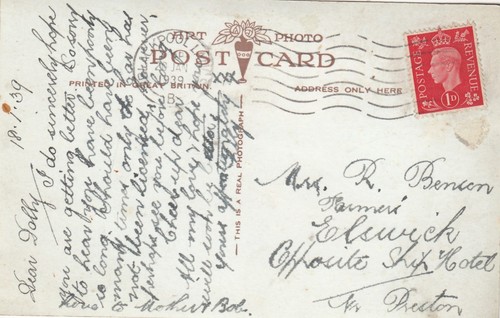 ART PHOTO
POST CARD
PRINTED IN GREAT BRITAIN
ADDRESS ONLY HERE
THIS IS A REAL PHOTOGRAPH
1939
XXX
POSTAGE
REVENUE
1D
18.1.39
Dear Dolly
I do sincerely hope
you are getting better. So sorry
to hear you have been poorly
so long. Should have been
many times only the car has
not been licensed,
perhaps see you before
Cheer up dear
All my love & hope you
will soon be
yours affectionately
love to Mother & Bob.
Mrs. R. Benson
Farmers
Elswick
Opposite Ship Hotel
Nr Preston